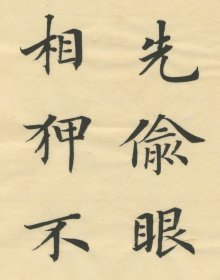 先偷眼
相狎不